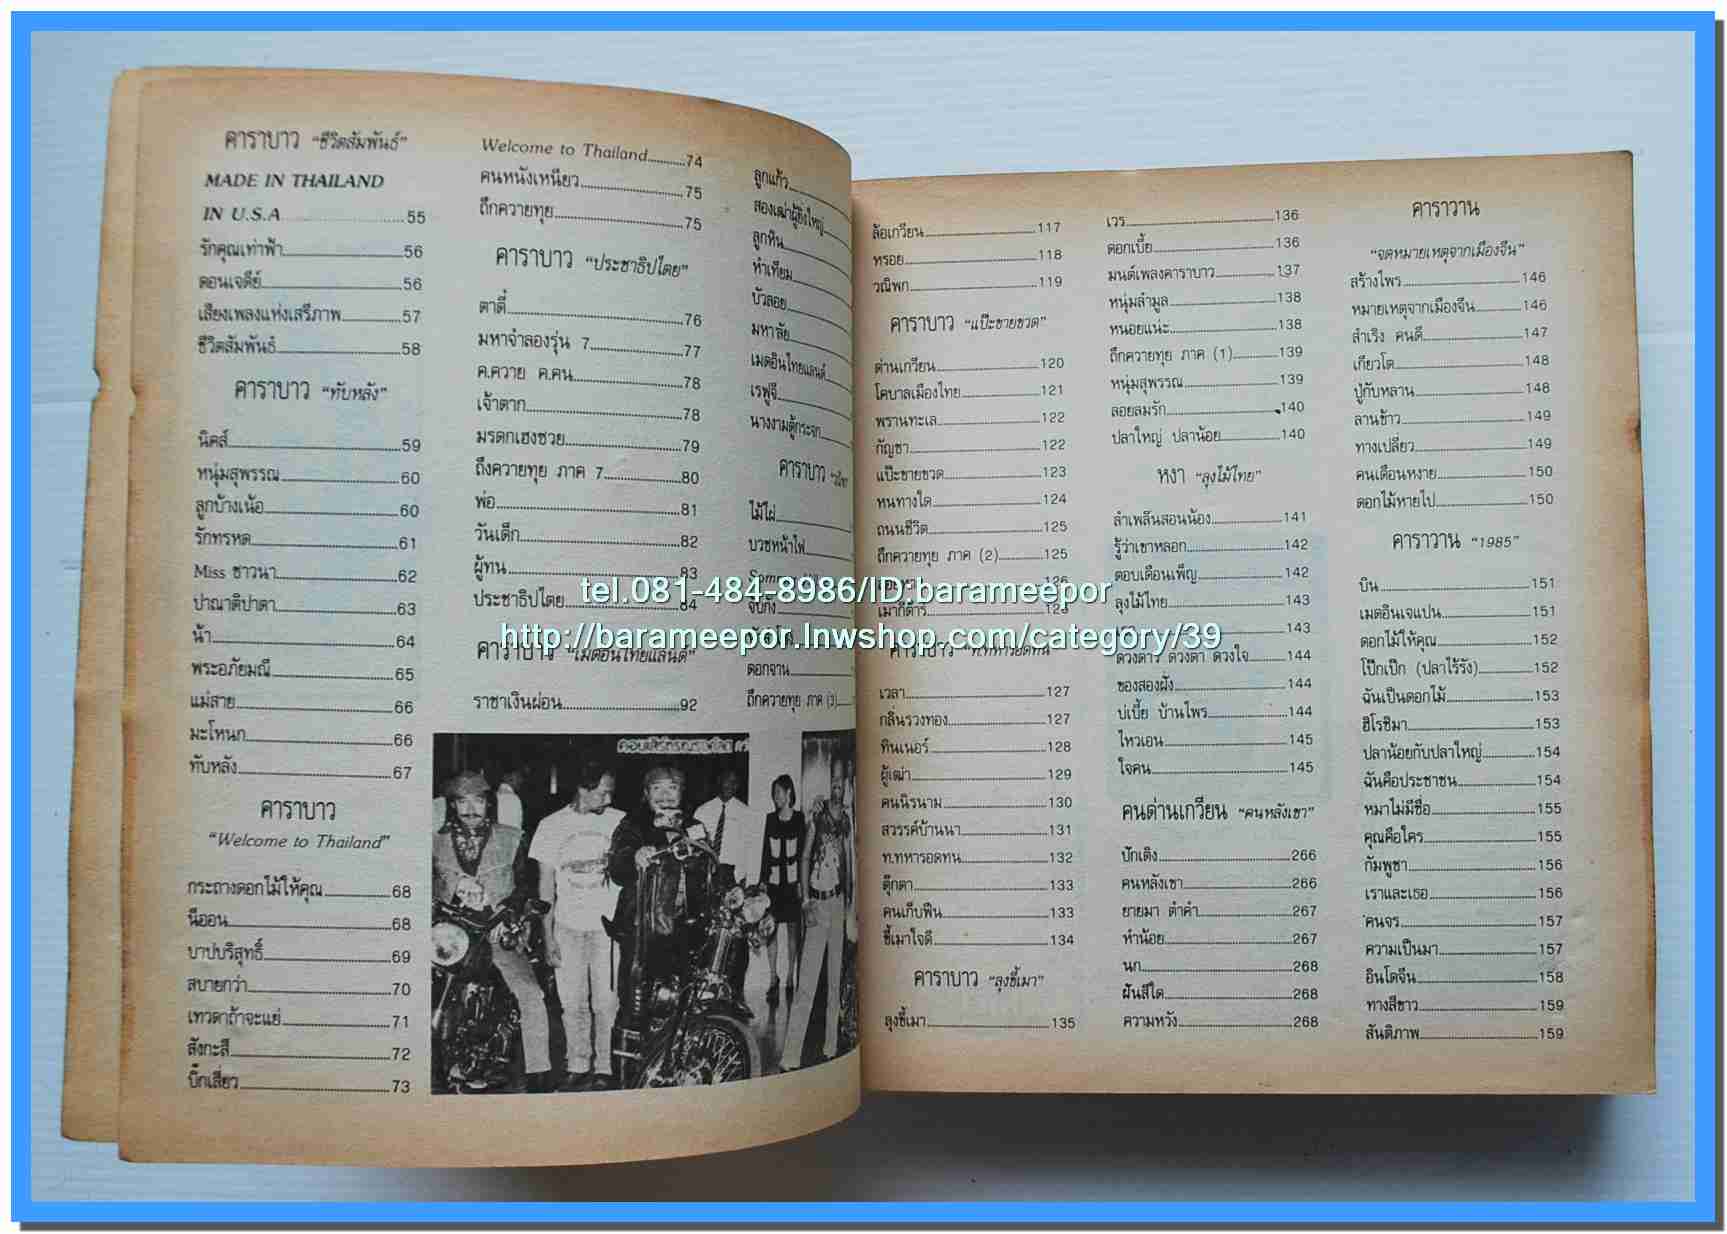 คาราบาว "ชีวิตสัมพันธ์"
MADE IN THAILAND
IN U.S.A. 55
รักคุณเท่าฟ้า 56
ดอนเจดีย์ 56
เสียงเพลงแห่งเสรีภาพ 57
ชีวิตสัมพันธ์ 58
คาราบาว "ทับหลัง"
นิคส์ 59
หนุ่มสุพรรณ 60
ลูกบ้างเน้อ 60
รักทรหด 61
Miss ชาวนา 62
ปาณาติปาตา 63
น้ำ 64
พระอภัยมณี 65
แม่สาย 66
มะโหนก 66
ทับหลัง 67
คาราบาว
"Welcome to Thailand"
กระถางดอกไม้ให้คุณ 68
นีออน 68
บาปบริสุทธิ์ 69
สบายกว่า 70
เทวดาถ้าจะแย่ 71
สังกะสี 72
บิ๊กเสี่ยว 73
Welcome to Thailand 74
คนหนังเหนียว 75
ถึกควายทุย 75
คาราบาว "ประชาธิปไตย"
ตาดี้ 76
มหาจำลองรุ่น 7 77
ค.ควาย ค.คน 78
เจ้าตาก 78
มรดกเฮงซวย 79
ถึงควายทุย ภาค 7 80
พ่อ 81
วันเด็ก 82
ผู้ทน 83
ประชาธิปไตย 84
คาราบาว "เมดอินไทยแลนด์"
ราชาเงินผ่อน 92
ลูกแก้ว
สองเฒ่าผู้ยิ่งใหญ่
ลูกหิน
หำเทียม
บัวลอย
มหาลัย
เมดอินไทยแลนด์
เรฟูจี
นางงามตู้กระจก
คาราบาว
ไม้ไผ่
บวชหน้าไฟ
ดอกจาน
ถึกควายทุย ภาค (3)
ล้อเกวียน 117
ทรอย 118
วณิพก 119
คาราบาว "แป๊ะขายขวด"
ด่านเกวียน 120
โคบาลเมืองไทย 121
พรานทะเล 122
กัญชา 122
แป๊ะขายขวด 123
หนทางใด 124
ถนนชีวิต 125
ถึกควายทุย ภาค (2) 125
126
เมากีต้าร์ 123
คาราบาว "ท.ทหารอดทน"
เวลา 127
กลิ่นรวงทอง 127
ทินเนอร์ 128
ผู้เฒ่า 129
คนนิรนาม 130
สวรรค์บ้านนา 131
ท.ทหารอดทน 132
ตุ๊กตา 133
คนเก็บฟืน 133
ขี้เมาใจดี 134
คาราบาว "ลุงขี้เมา"
ลุงขี้เมา 135
เวร 136
ดอกเบี้ย 136
มนต์เพลงคาราบาว 137
หนุ่มลำมูล 138
หนอยแน่ะ 138
ถึกควายทุย ภาค (1) 139
หนุ่มสุพรรณ 139
ลอยลมรัก 140
ปลาใหญ่ ปลาน้อย 140
หงา "ลุงไม้ไทย"
ลำเพลินสอนน้อง 141
รู้ว่าเขาหลอก 142
ตอบเดือนเพ็ญ 142
ลุงไม้ไทย 143
143
ดวงดาว ดวงตา ดวงใจ 144
ของสองฝั่ง 144
บ่เบี้ย บ้านไพร 144
ไหวเอน 145
ใจคน 145
คนด่านเกวียน "คนหลังเขา"
ปักเติง 266
คนหลังเขา 266
ยายมา ตำคำ 267
หำน้อย 267
นก 268
ฝันสีใด 268
ความหวัง 268
คาราวาน
"จดหมายเหตุจากเมืองจีน"
สร้างไพร 146
หมายเหตุจากเมืองจีน 146
สำเริง คนดี 147
เกียวโต 148
ปู่กับหลาน 148
ลานข้าว 149
ทางเปลี่ยว 149
คนเดือนหงาย 150
ดอกไม้หายไป 150
คาราวาน "1985"
บิน 151
เมดอินเจแปน 151
ดอกไม้ให้คุณ 152
โป๊กเป๊ก (ปลาไร้รัง) 152
ฉันเป็นดอกไม้ 153
ฮิโรชิมา 153
ปลาน้อยกับปลาใหญ่ 154
ฉันคือประชาชน 154
หมาไม่มีชื่อ 155
คุณคือใคร 155
กัมพูชา 156
เราและเธอ 156
คนจร 157
ความเป็นมา 157
อินโดจีน 158
ทางสีขาว 159
สันติภาพ 159
tel.081-484-8986/ID:barameepor
http://barameepor.lnwshop.com/category/39